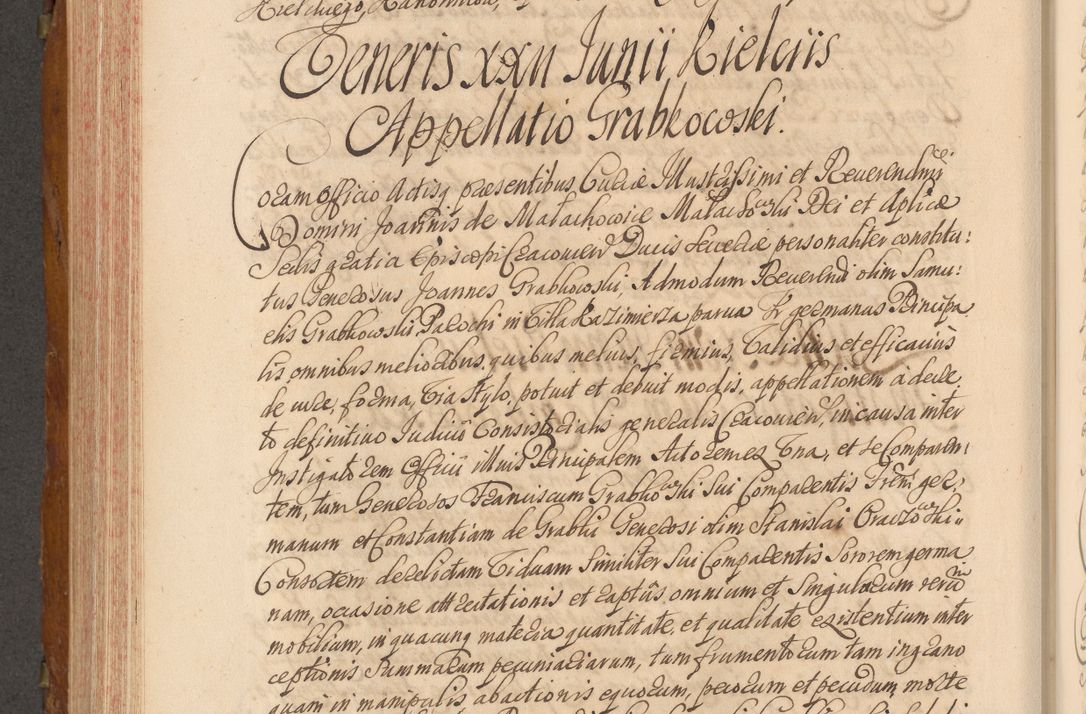 Veneris XXII Junii Kielciis
Appellatio Grabkowski.
Coram Officio Actisq praesentibus Curiae Illustrissimi et Reverendmi
Domini Joannis de Małachowice Małachowski Dei et Aplicae
Sedis gratia Episcopi Cracovien Ducis Severiae personaliter constitu:
tus Generosus Joannes Grabkowski, Admodum Reverendi olim Samu:
elis Grabkowski, Parochi in Villa Kazimierza parva Fr germanus Principa
lis omnibus melioribus quibus melius, firmius, validius et efficaciús
de iure, forma, via stylo, potuit et debuit modis, appellationem á decre
to definitivo Judicii Consistorialis generalis Cracovien, in causa inter
Instigatorem Officii illius Principalem Actorem ex una, et se Comparen:
tem, tum Generosos Franciscum Grabkowski sui Comparentis Frem ger:
manum et Constantiam de Grabki Generosi olim Stanislai
Consortem derelictam viduam similiter sui Comparentis Sororem germa
nam, occasione attrectationis et raptús omnium et singularum rerum
mobilium, in quacunq materia quantitate, et qualitate existentium inter
ceptionis summarum pecuniariarum, tum frumentorum tam in grano
quam in manipulis abactionis equorum, pecorum et pecudum morte